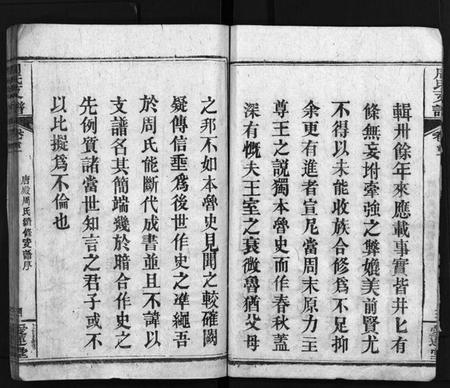 輯卅餘年來應載事實皆井匕有
條無妄坿牽強之弊媲美前賢尤
不得以未能收族合修爲不足抑
余更有進者宣尼當周末原力主
尊王之説獨本魯史而作春秋蓋
深有慨夫王室之衰微魯猶父母
之邦不如本魯史見聞之較確闕
疑傳信垂爲後世作史之準繩吾
於周氏能斷代成書並且不諱以
支譜名其簡端幾於暗合作史之
先例質諸當世知言之君子或不
以比擬爲不倫也
唐殿周氏續修支譜序